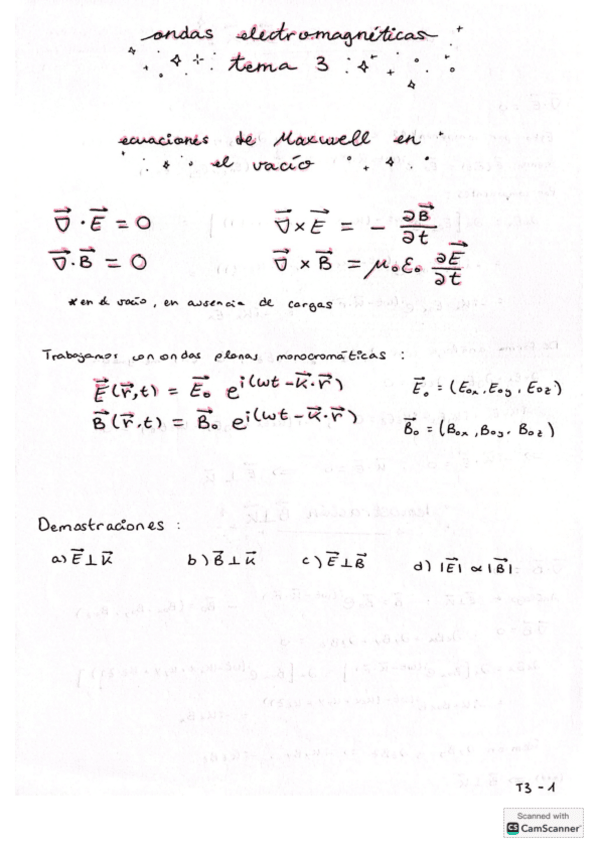 ondas electromagnéticas
tema 3
ecuaciones de Maxwell en
el vacío
∇⃗ · E⃗ = 0
∇⃗ × E⃗ = - ∂B⃗/∂t
∇⃗ · B⃗ = 0
∇⃗ × B⃗ = μ₀ε₀ ∂E⃗/∂t
* en el vacío, en ausencia de cargas
Trabajamos con ondas planas monocromáticas :
E⃗(r⃗,t) = E⃗₀ e^i(ωt - k⃗·r⃗)
E⃗₀ = (E₀x, E₀y, E₀z)
B⃗(r⃗,t) = B⃗₀ e^i(ωt - k⃗·r⃗)
B⃗₀ = (B₀x, B₀y, B₀z)
Demostraciones :
a) E⃗ ⊥ k⃗ b) B⃗ ⊥ k⃗ c) E⃗ ⊥ B⃗ d) |E⃗| ∝ |B⃗|
T3 - 1
Scanned with
CS CamScanner